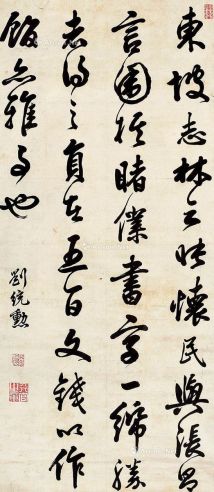 東坡志林云張懷民與張昌
言圍棋賭僕書字一紙勝
者得之負出五百文錢以作
飯亦雅事也
劉統勳